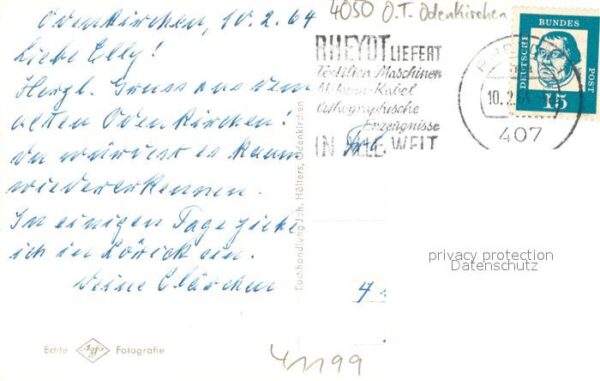 Odenkirchen, 10.2.64
Liebe Elly!
Herzl. Gruss aus dem
alten Odenkirchen!
Du würdest es kaum
wiedererkennen.
In einigen Tage ziehe
ich in Lörick ein.
Deine Clärchen
4050 O.T. Odenkirchen
RHEYDT LIEFERT
Textilien Maschinen
Kabel
Erzeugnisse
IN ALLE WELT
10.2.
407
DEUTSCHE
BUNDES
POST
15
Buchhandlung Joh. Hölters, Odenkirchen
privacy protection
Datenschutz
Echte Agfa Fotografie
41199